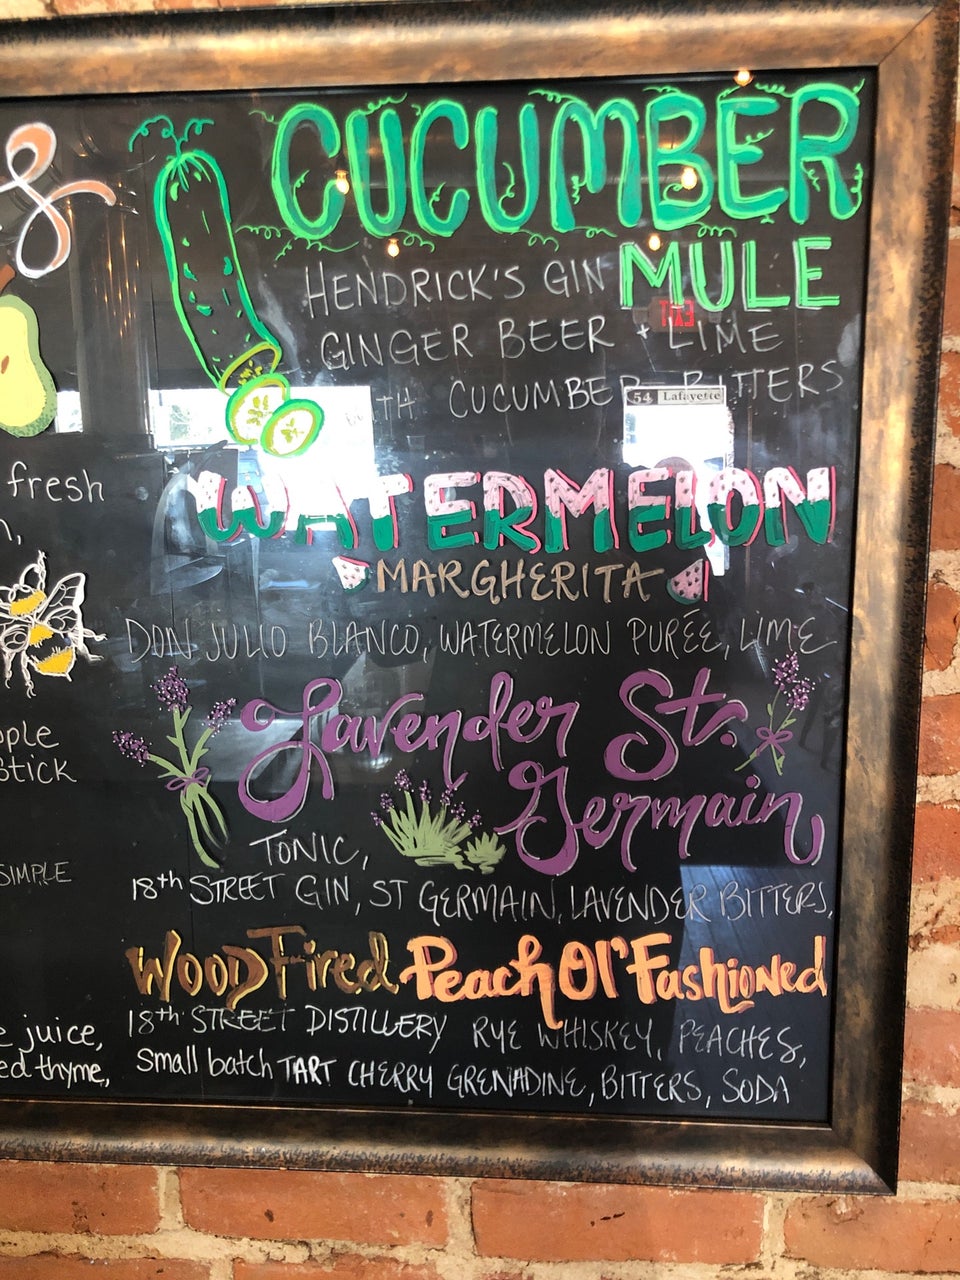 CUCUMBER
MULE
HENDRICK'S GIN
GINGER BEER + LIME
WITH CUCUMBER BITTERS
54 Lafayette
EXIT
fresh
WATERMELON
MARGHERITA
DON JULIO BLANCO, WATERMELON PURÉE, LIME
stick
Lavender St.
Germain
TONIC,
SIMPLE
18th STREET GIN, ST GERMAIN, LAVENDER BITTERS,
WOOD Fired Peach Ol' Fashioned
18th STREET DISTILLERY RYE WHISKEY, PEACHES,
juice,
Small batch TART CHERRY GRENADINE, BITTERS, SODA
thyme,